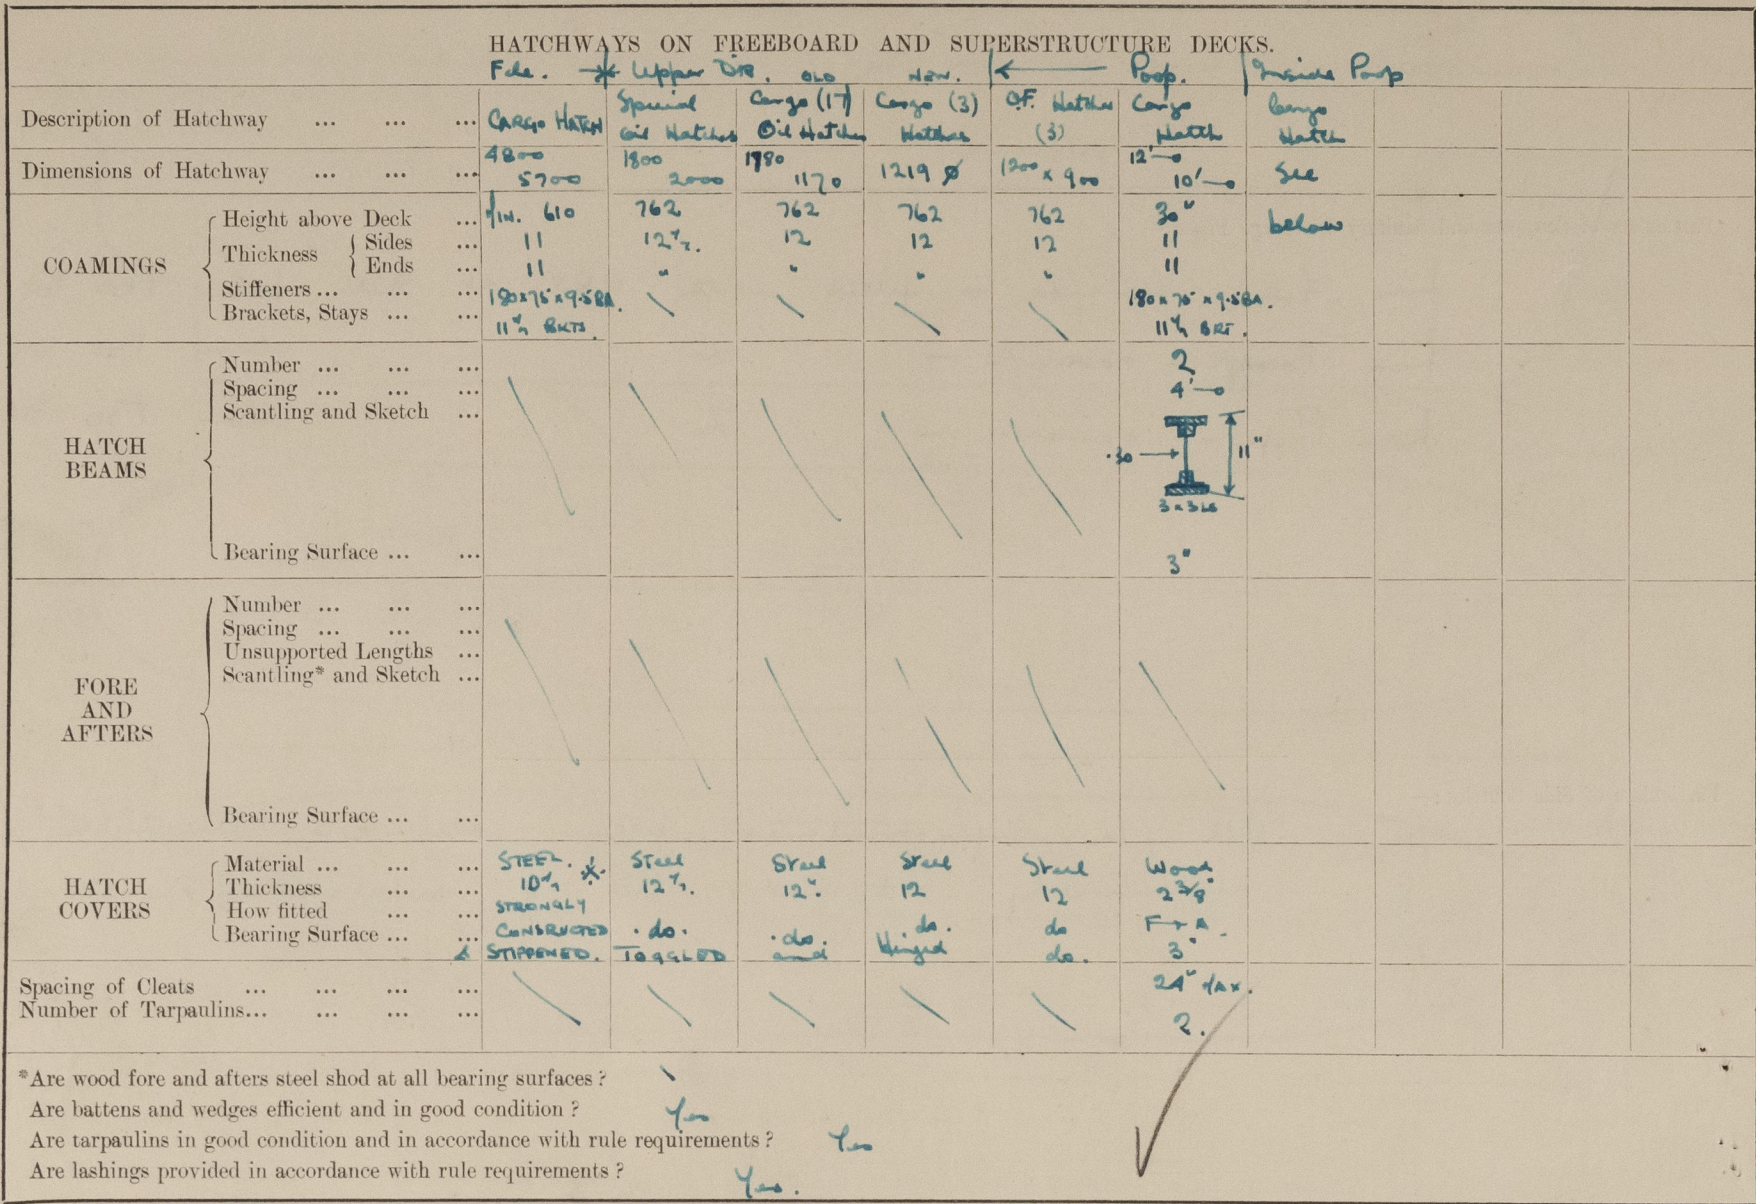 HATCHWAYS ON FREEBOARD AND SUPERSTRUCTURE DECKS.
Fcle. Upper Dk. OLD NEW. Poop. Inside Poop
Description of Hatchway ... ... ... CARGO HATCH Special Oil Hatches Cargo (17) Oil Hatches Cargo (3) Hatches O.F. Hatches (3) Cargo Hatch Cargo Hatch
Dimensions of Hatchway ... ... ... 4800 5700 1800 2000 1780 1170 1219 Ø 1200 x 900 12'—0 10'—0 See
COAMINGS
Height above Deck ... MIN. 610 762 762 762 762 30" below
Thickness Sides ... 11 12 12 12 12 11
Ends ... 11 " " " " 11
Stiffeners ... ... ... 180x75x9.5BA. 180x75x9.5BA.
Brackets, Stays ... ... 11 BKTS. 11 BRT.
HATCH BEAMS
Number ... ... ... 2
Spacing ... ... ... 4'—0
Scantling and Sketch ... .30 11" 3x3 Ls
Bearing Surface ... ... 3"
FORE AND AFTERS
Number ... ... ...
Spacing ... ... ...
Unsupported Lengths ...
Scantling* and Sketch ...
Bearing Surface ... ...
HATCH COVERS
Material ... ... ... STEEL. Steel Steel Steel Steel Wood
Thickness ... ... 10 12 12 12 12 2 3/8"
How fitted ... ... STRONGLY
Bearing Surface ... ... CONSRUCTED .do. .do. do. do F + A.
& STIFFENED. TOGGLED and Hinged do. 3"
Spacing of Cleats ... ... ... ... 24" MAX.
Number of Tarpaulins... ... ... ... 2.
*Are wood fore and afters steel shod at all bearing surfaces?
Are battens and wedges efficient and in good condition? Yes
Are tarpaulins in good condition and in accordance with rule requirements? Yes
Are lashings provided in accordance with rule requirements? Yes.